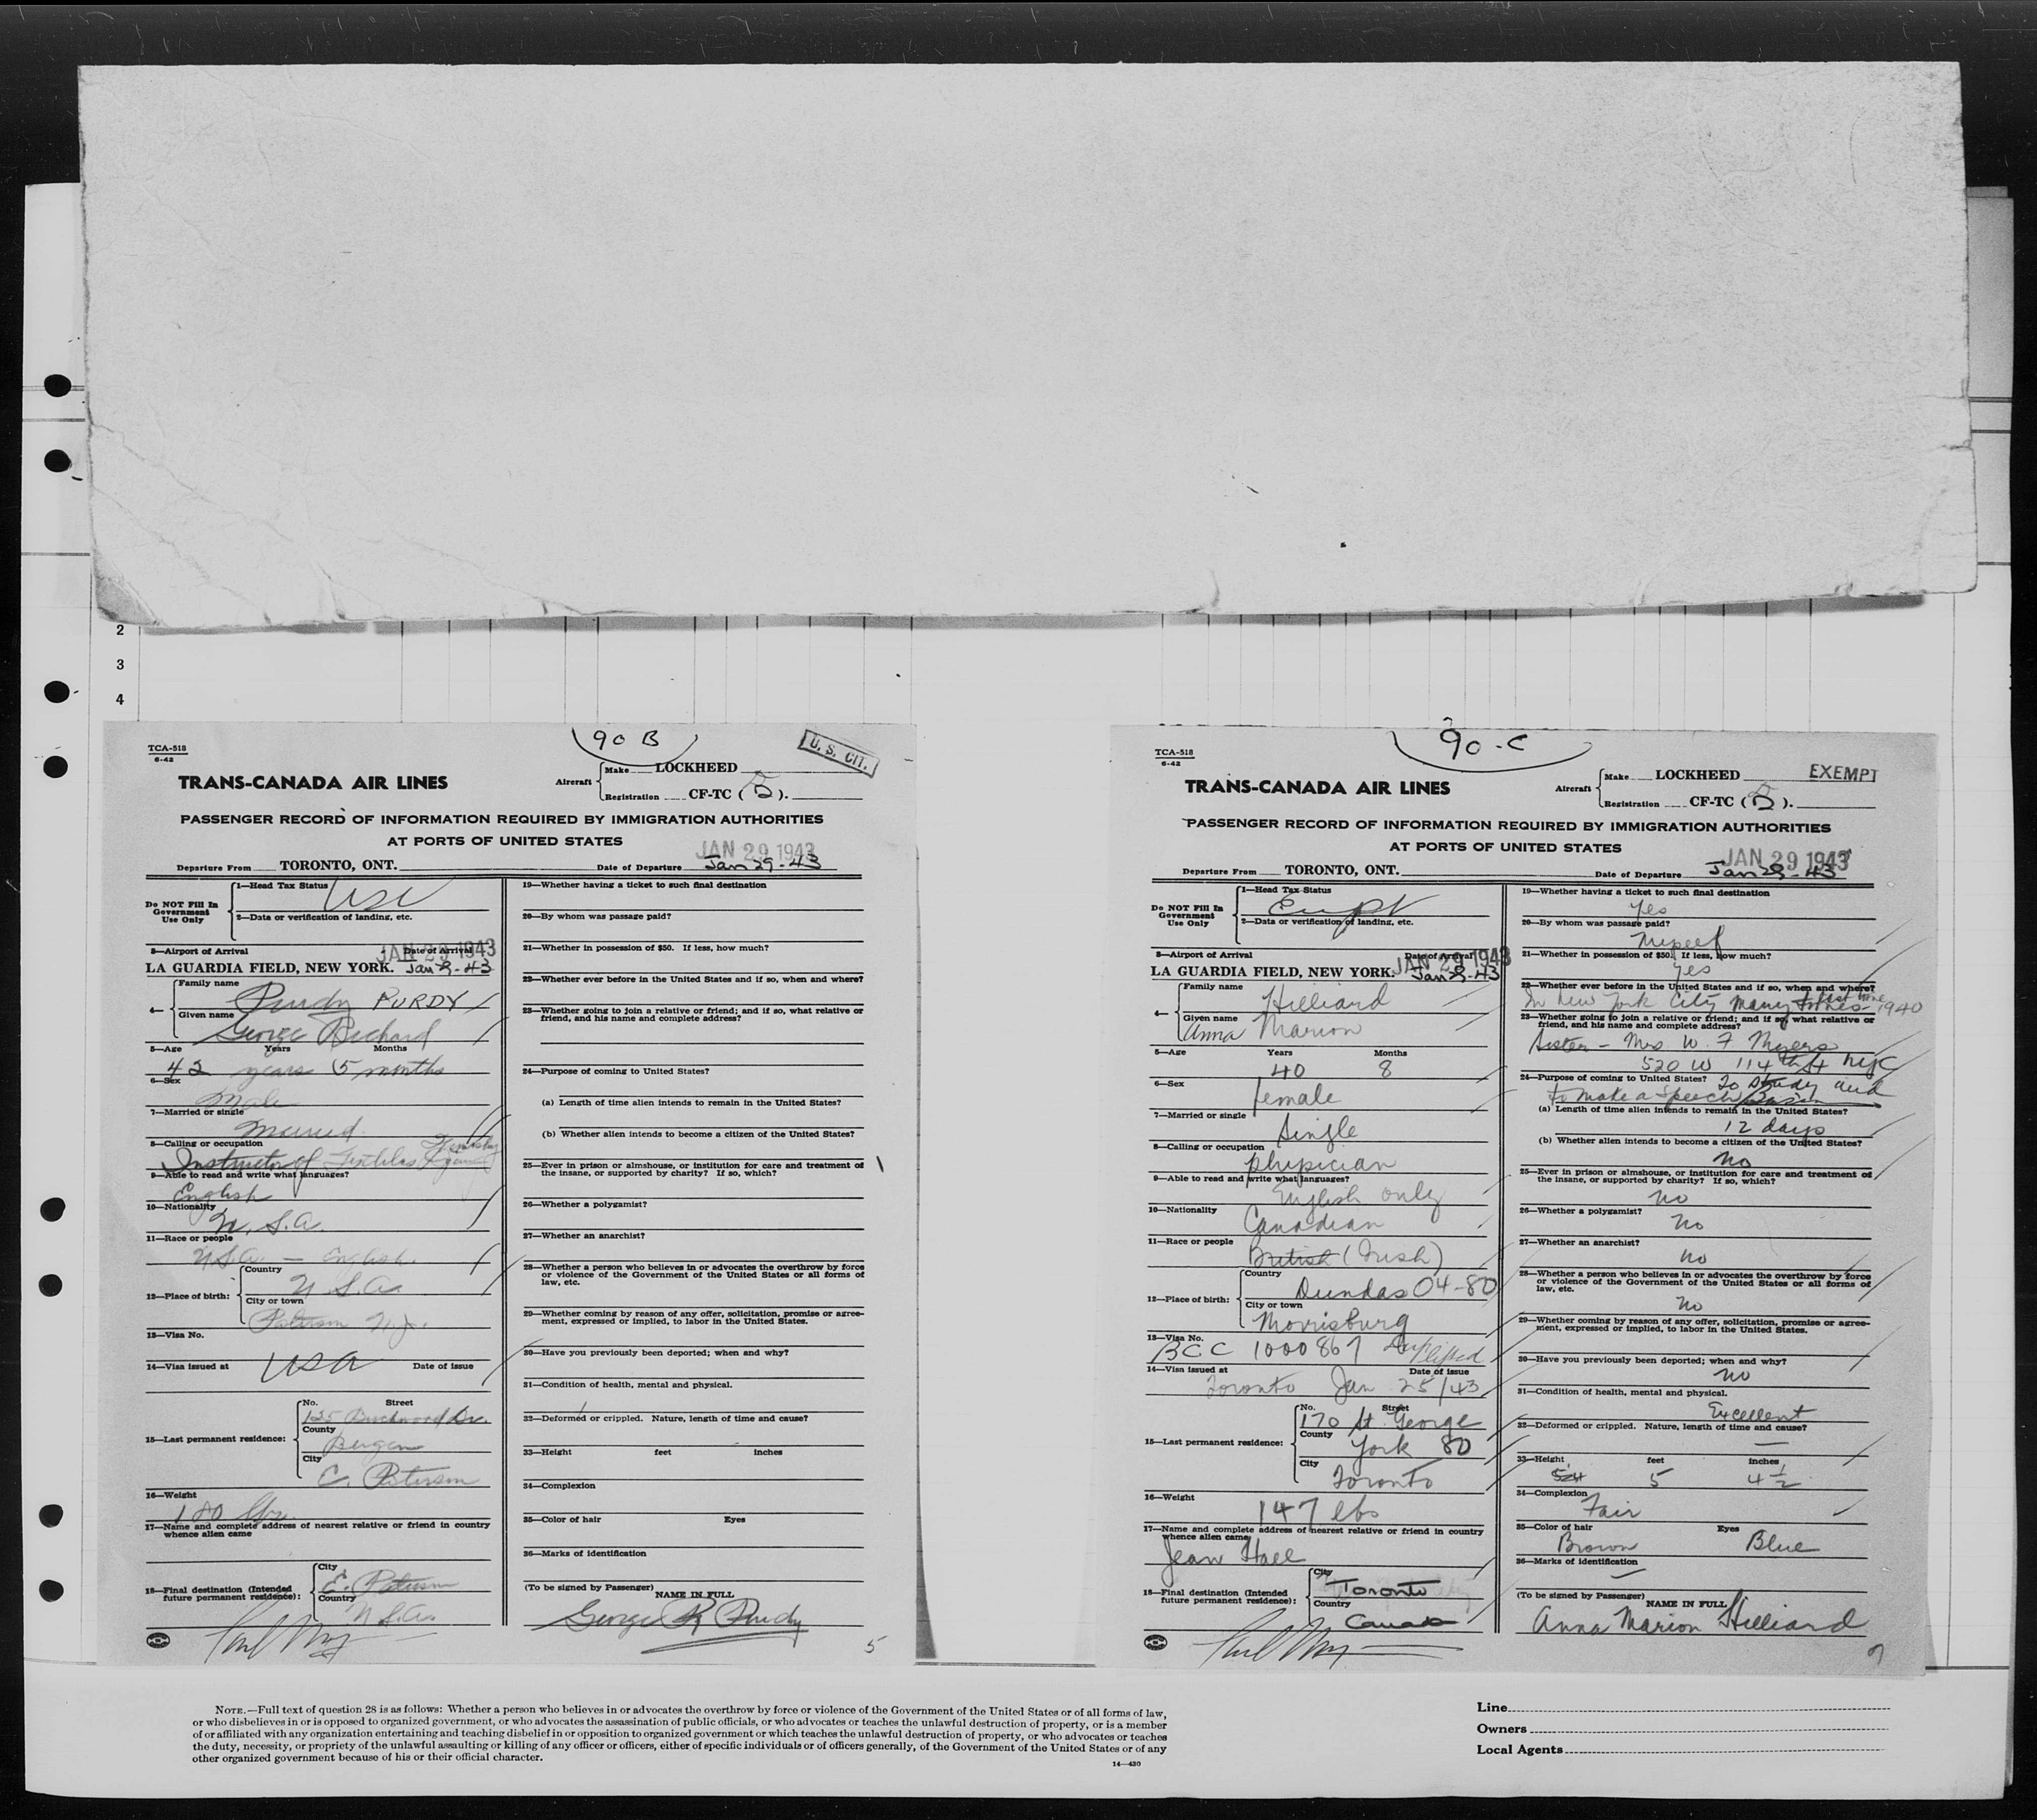 2
3
4
90 B
U. S. CIT.
TCA-518
6-42
TRANS-CANADA AIR LINES
Aircraft
Make LOCKHEED
Registration CF-TC (D).
PASSENGER RECORD OF INFORMATION REQUIRED BY IMMIGRATION AUTHORITIES
AT PORTS OF UNITED STATES
JAN 29 1943
Departure From TORONTO, ONT. Date of Departure Jan 29-43
Do NOT Fill In Government Use Only
1—Head Tax Status USC
2—Data or verification of landing, etc.
3—Airport of Arrival Date of Arrival
JAN 29 1943
LA GUARDIA FIELD, NEW YORK. Jan 29-43
4—
Family name Purdy PURDY
Given name George Richard
5—Age Years Months
42 years 5 months
6—Sex
Male
7—Married or single
Married
8—Calling or occupation
Instructor of Textiles
9—Able to read and write what languages?
English
10—Nationality
U.S.A.
11—Race or people
U.S.A. — English.
12—Place of birth:
Country
U.S.A.
City or town
Paterson N.J.
13—Visa No.
14—Visa issued at USA Date of issue
15—Last permanent residence:
No. Street
135 Birchwood Dr.
County
Bergen
City
E. Paterson
16—Weight
180 lbs.
17—Name and complete address of nearest relative or friend in country
whence alien came
18—Final destination (Intended
future permanent residence):
City
E. Paterson
Country
U.S.A.
19—Whether having a ticket to such final destination
20—By whom was passage paid?
21—Whether in possession of $50. If less, how much?
22—Whether ever before in the United States and if so, when and where?
23—Whether going to join a relative or friend; and if so, what relative or
friend, and his name and complete address?
24—Purpose of coming to United States?
(a) Length of time alien intends to remain in the United States?
(b) Whether alien intends to become a citizen of the United States?
25—Ever in prison or almshouse, or institution for care and treatment of
the insane, or supported by charity? If so, which?
26—Whether a polygamist?
27—Whether an anarchist?
28—Whether a person who believes in or advocates the overthrow by force
or violence of the Government of the United States or all forms of
law, etc.
29—Whether coming by reason of any offer, solicitation, promise or agree-
ment, expressed or implied, to labor in the United States.
30—Have you previously been deported; when and why?
31—Condition of health, mental and physical.
32—Deformed or crippled. Nature, length of time and cause?
33—Height feet inches
34—Complexion
35—Color of hair Eyes
36—Marks of identification
(To be signed by Passenger)
NAME IN FULL
George R Purdy
5
90-C
TCA-518
6-42
TRANS-CANADA AIR LINES
Aircraft
Make LOCKHEED
EXEMPT
Registration CF-TC (D).
PASSENGER RECORD OF INFORMATION REQUIRED BY IMMIGRATION AUTHORITIES
AT PORTS OF UNITED STATES
JAN 29 1943
Departure From TORONTO, ONT. Date of Departure Jan 29-43
Do NOT Fill In Government Use Only
1—Head Tax Status
2—Data or verification of landing, etc.
3—Airport of Arrival Date of Arrival
JAN 29 1943
LA GUARDIA FIELD, NEW YORK. Jan 29-43
4—
Family name Hilliard
Given name
Anna Marion
5—Age Years Months
40 8
6—Sex
female
7—Married or single
Single
8—Calling or occupation
physician
9—Able to read and write what languages?
English only
10—Nationality
Canadian
11—Race or people
British (Irish)
12—Place of birth:
Country
Dundas 04-80
City or town
Morrisburg
13—Visa No.
BCC 1000867
14—Visa issued at Date of issue
Toronto Jan 25/43
15—Last permanent residence:
No. Street
170 St. George
County
York 80
City
Toronto
16—Weight
147 lbs
17—Name and complete address of nearest relative or friend in country
whence alien came
Jean Hall
18—Final destination (Intended
future permanent residence):
City
Toronto
Country
Canada
19—Whether having a ticket to such final destination
yes
20—By whom was passage paid?
myself
21—Whether in possession of $50. If less, how much?
yes
22—Whether ever before in the United States and if so, when and where?
In New York City many times last time 1940
23—Whether going to join a relative or friend; and if so, what relative or
friend, and his name and complete address?
Sister - Mrs. W. F. Myers
520 W 114th St NYC
24—Purpose of coming to United States? To study and
to make a speech
(a) Length of time alien intends to remain in the United States?
12 days
(b) Whether alien intends to become a citizen of the United States?
no
25—Ever in prison or almshouse, or institution for care and treatment of
the insane, or supported by charity? If so, which?
no
26—Whether a polygamist?
no
27—Whether an anarchist?
no
28—Whether a person who believes in or advocates the overthrow by force
or violence of the Government of the United States or all forms of
law, etc.
no
29—Whether coming by reason of any offer, solicitation, promise or agree-
ment, expressed or implied, to labor in the United States.
30—Have you previously been deported; when and why?
no
31—Condition of health, mental and physical.
Excellent
32—Deformed or crippled. Nature, length of time and cause?
—
33—Height feet inches
5 4 1/2
34—Complexion
Fair
35—Color of hair Eyes
Brown Blue
36—Marks of identification
—
(To be signed by Passenger)
NAME IN FULL
Anna Marion Hilliard
NOTE.—Full text of question 28 is as follows: Whether a person who believes in or advocates the overthrow by force or violence of the Government of the United States or of all forms of law,
or who disbelieves in or is opposed to organized government, or who advocates the assassination of public officials, or who advocates or teaches the unlawful destruction of property, or is a member
of or affiliated with any organization entertaining and teaching disbelief in or opposition to organized government or which teaches the unlawful destruction of property, or who advocates or teaches
the duty, necessity, or propriety of the unlawful assaulting or killing of any officer or officers, either of specific individuals or of officers generally, of the Government of the United States or of any
other organized government because of his or their official character.
14—430
Line
Owners
Local Agents